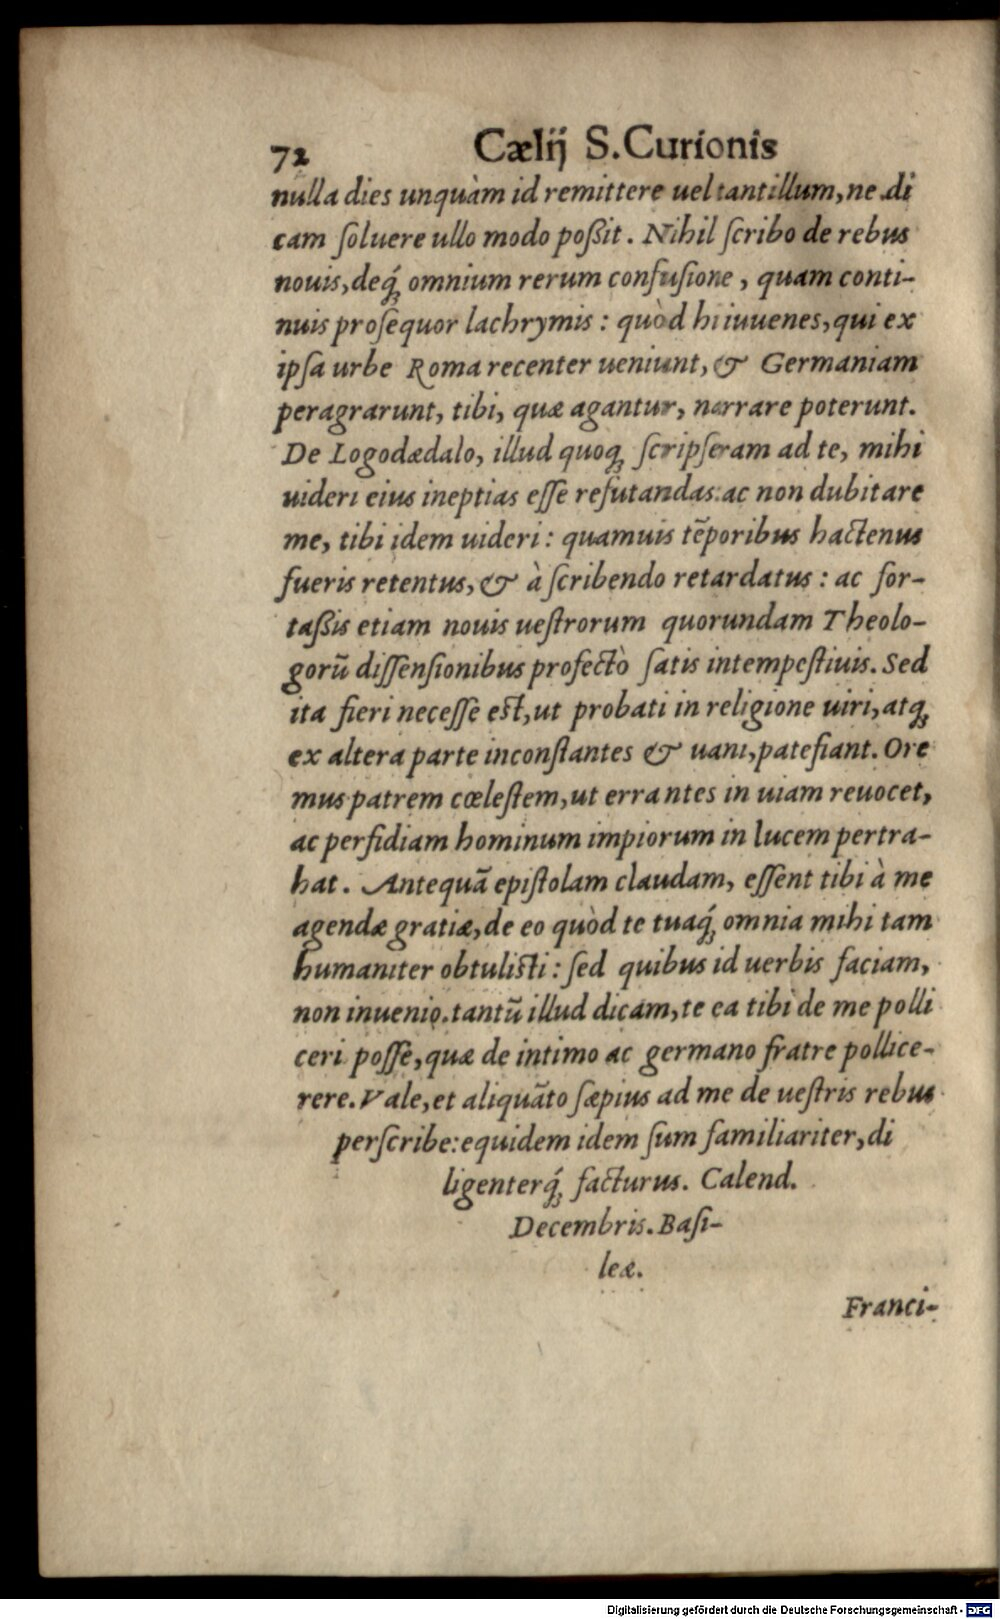 72 Cælĳ S. Curionis
nulla dies unquàm id remittere uel tantillum, ne di
cam ſoluere ullo modo poßit. Nihil ſcribo de rebus
nouis, deq́ꝫ omnium rerum confuſione, quam conti-
nuis proſequor lachrymis: quòd hi iuuenes, qui ex
ipſa urbe Roma recenter ueniunt, & Germaniam
peragrarunt, tibi, quæ agantur, narrare poterunt.
De Logodædalo, illud quoqꝫ ſcripſeram ad te, mihi
uideri eius ineptias eſſe refutandas: ac non dubitare
me, tibi idem uideri: quamuis tẽporibus hactenus
fueris retentus, & à ſcribendo retardatus: ac for-
taßis etiam nouis ueſtrorum quorundam Theolo-
gorũ diſſenſionibus profectò ſatis intempeſtiuis. Sed
ita fieri neceſſe eſt, ut probati in religione uiri, atqꝫ
ex altera parte inconſtantes & uani, patefiant. Ore
mus patrem cœleſtem, ut errantes in uiam reuocet,
ac perfidiam hominum impiorum in lucem pertra-
hat. Antequã epiſtolam claudam, eſſent tibi à me
agendæ gratiæ, de eo quòd te tuaq́ꝫ omnia mihi tam
humaniter obtuliſti: ſed quibus id uerbis faciam,
non inuenio. tantũ illud dicam, te ea tibi de me polli
ceri poſſe, quæ de intimo ac germano fratre pollice-
rere. Vale, et aliquãto ſæpius ad me de ueſtris rebus
perſcribe: equidem idem ſum familiariter, di
ligenterq́ꝫ facturus. Calend.
Decembris. Baſi-
leæ.
Franci-
Digitalisierung gefördert durch die Deutsche Forschungsgemeinschaft - DFG